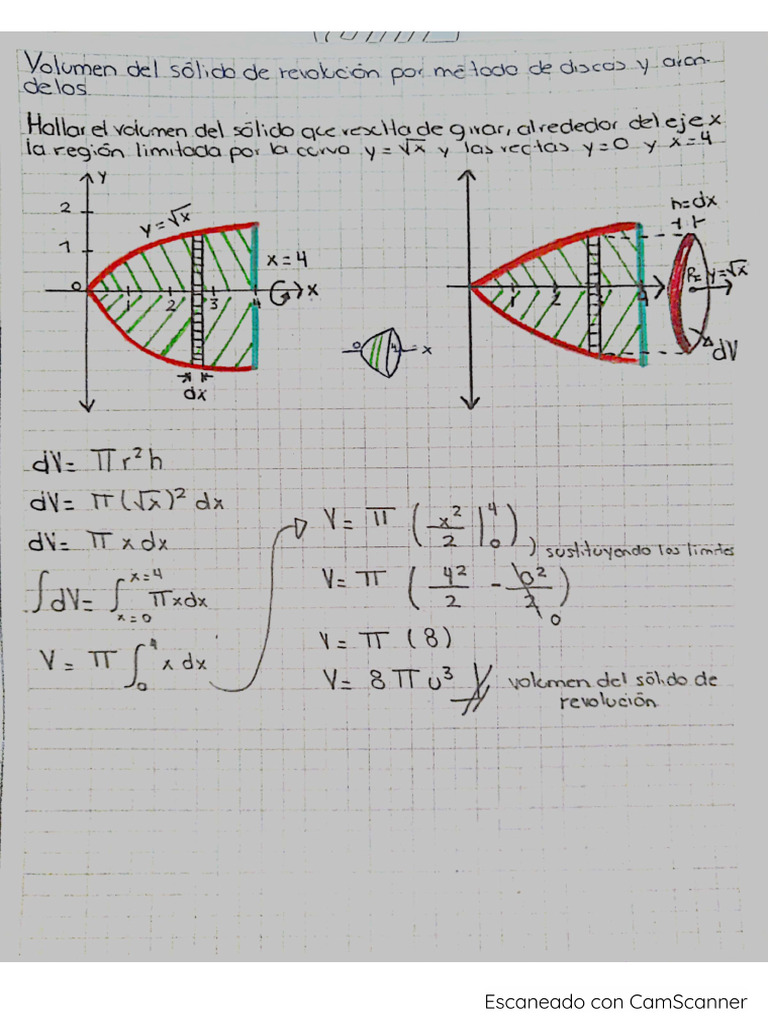 Volumen del sólido de revolución por método de discos y aran-
delos.
Hallar el volumen del sólido que reselta de girar, alrededor del eje x
la región limitada por la curva y = √x y las rectas y = 0 y x = 4
Y
2
y = √x
1
x = 4
0 1 2 3 4 x
dx
0 4 x
1 2 4
h = dx
R = y = √x
dV
dV = π r² h
dV = π (√x)² dx
dV = π x dx
∫ dV = ∫ x=0 x=4 π x dx
V = π ∫₀⁴ x dx
V = π ( x²/2 |₀⁴ )
) sustituyendo los limites
V = π ( 4²/2 - 0²/2 ) 0
V = π (8)
V = 8 π u³ volumen del sólido de
revolución
Escaneado con CamScanner